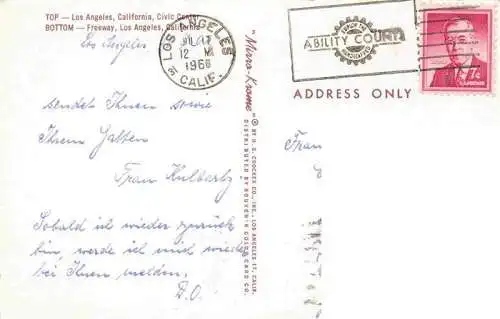 TOP — Los Angeles, California, Civic Center
BOTTOM — Freeway, Los Angeles, California
Los Angeles
LOS ANGELES
12 M
1968
CALIF.
ABILITY COUNTS
ADDRESS ONLY
sendet Ihnen sowie
Ihrem Gatten
Frau
Sobald ich wieder zurück
bin, werde ich mich wieder
bei Ihnen melden.
"Mirro-Krome"
® BY H. S. CROCKER CO., INC., LOS ANGELES 17, CALIF.
DISTRIBUTED BY COLOR CARD CO.
Frau